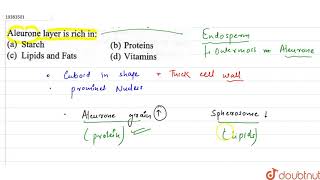 10383501
Aleurone layer is rich in:
(a) Starch (b) Proteins
(c) Lipids and Fats (d) Vitamins
Endosperm
Outermost = Aleurone
• Cuboid in shape + Thick cell wall
• prominent Nucleus
• Aleurone grain ↑ Spherosome ↓
(protein) (lipids)
doubtnut